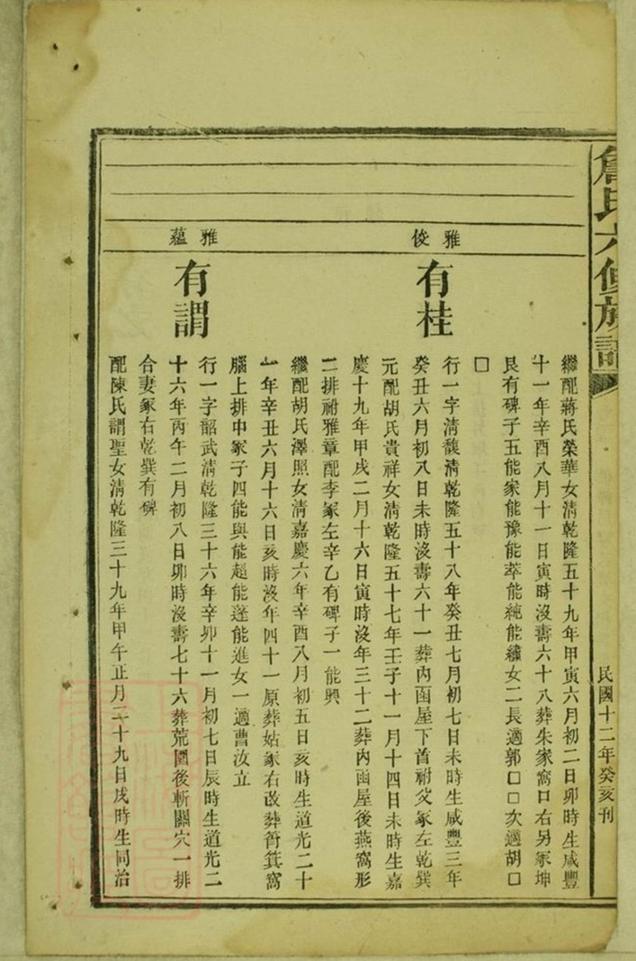 詹氏六修族譜
民國十二年癸亥刊
繼配蔣氏榮華女清乾隆五十九年甲寅六月初二日卯時生咸豐
十一年辛酉八月十一日寅時沒壽六十八葬朱家窩口右另冢坤
艮有碑子五能家能豫能萃能純能繡女二長適郭口口次適胡口
口
雅俊
有桂
行一字清馥清乾隆五十八年癸丑七月初七日未時生咸豐三年
癸丑六月初八日未時沒壽六十一葬內函屋下首祔父冢左乾巽
元配胡氏貴祥女清乾隆五十七年壬子十一月十四日未時生嘉
慶十九年甲戌二月十六日寅時沒年三十二葬內函屋後燕窩形
二排祔雅章配李冢左辛乙有碑子一能興
繼配胡氏澤照女清嘉慶六年辛酉八月初五日亥時生道光二十
一年辛丑六月十六日亥時沒年四十一原葬姑冢右改葬筲箕窩
腦上排中冢子四能與能超能蓬能進女一適曹汝立
雅蘊
有謂
行一字韶武清乾隆三十六年辛卯十一月初七日辰時生道光二
十六年丙午二月初八日卯時沒壽七十六葬荒園後斬關穴一排
合妻冢右乾巽有碑
配陳氏謂聖女清乾隆三十九年甲午正月二十九日戌時生同治